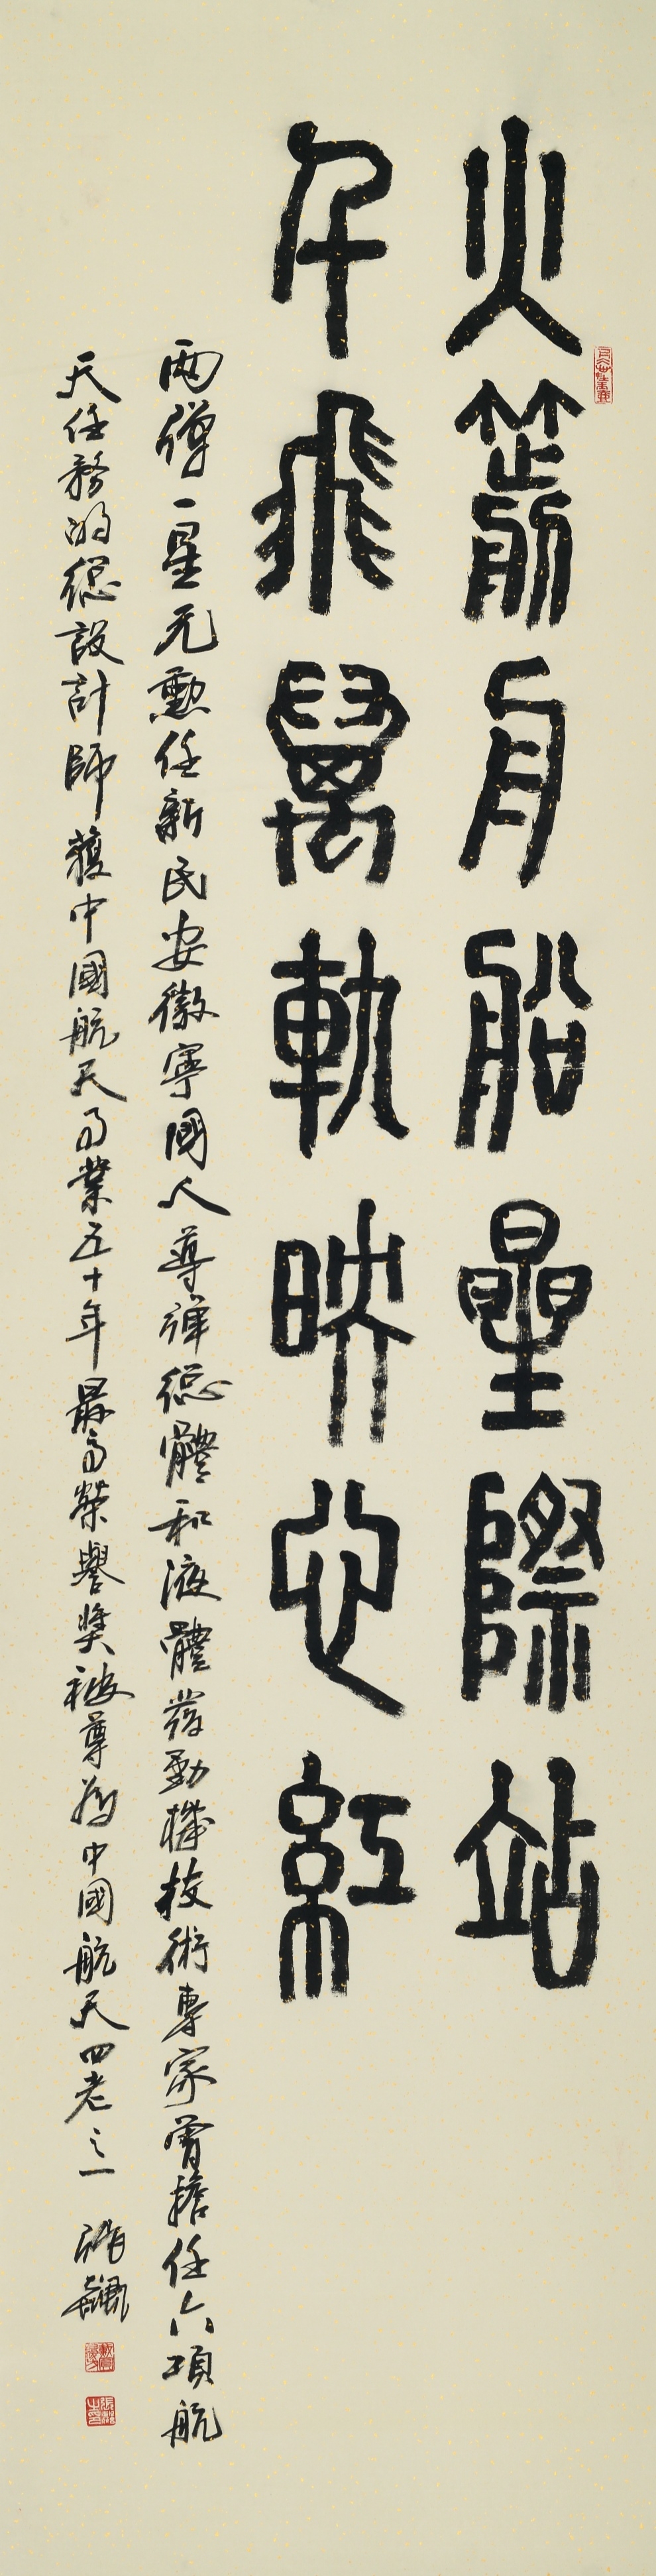 火箭舟船星際站
千飛萬軌映心紅
兩彈一星元勳任新民安徽寧國人導彈總體和液體發動機技術專家曾擔任六項航
天任務的總設計師獲中國航天事業五十年最高榮譽獎被尊為中國航天四老之一 張飆